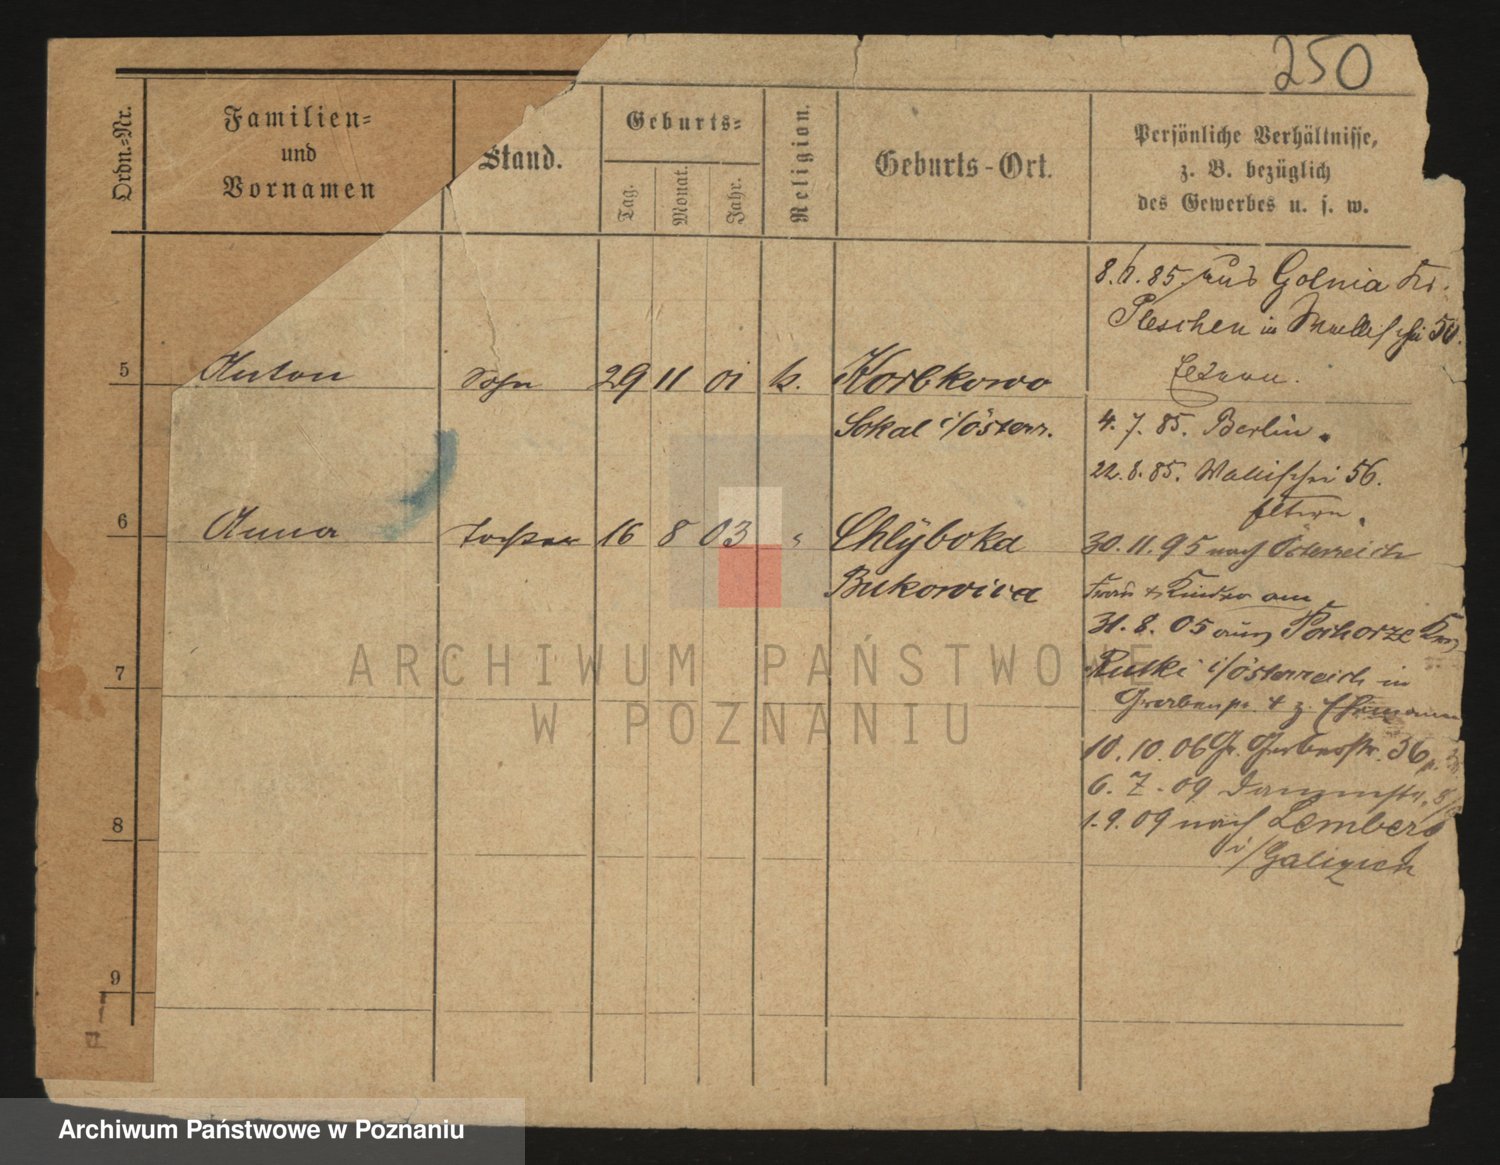 250
Ordn.-Nr.
Familien-
und
Vornamen
Stand.
Geburts-
Tag.
Monat.
Jahr.
Religion.
Geburts-Ort.
Persönliche Verhältnisse,
z. B. bezüglich
des Gewerbes u. s. w.
8. 85. aus Golnia Kr.
Pleschen in Wallischei 50.
Eltern.
5 Anton Sohn 29 11 01 k. Korbkowo
Sokal i/österr.
4. 7. 85. Berlin.
22. 8. 85. Wallischei 56.
Eltern.
6 Anna Tochter 16 8 03 " Chlyboka
Bukowina
30. 11. 95 nach Österreich
Frau + Kinder am
31. 8. 05 aus
i/österreich in
7
10. 10. 06 Gr. Gerberstr. 36
6. 7. 09 Dammstr.
8
1. 9. 09 nach Lemberg
i/Galizien
9
ARCHIWUM PAŃSTWOWE
W POZNANIU
Archiwum Państwowe w Poznaniu